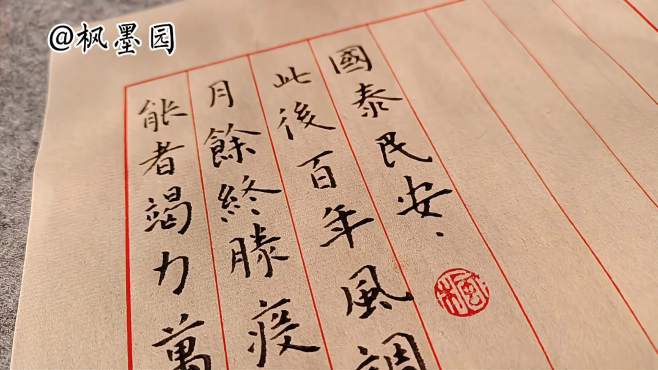 @枫墨园
能者竭力萬
月餘終勝疫
此後百年風調
國泰民安、
楓